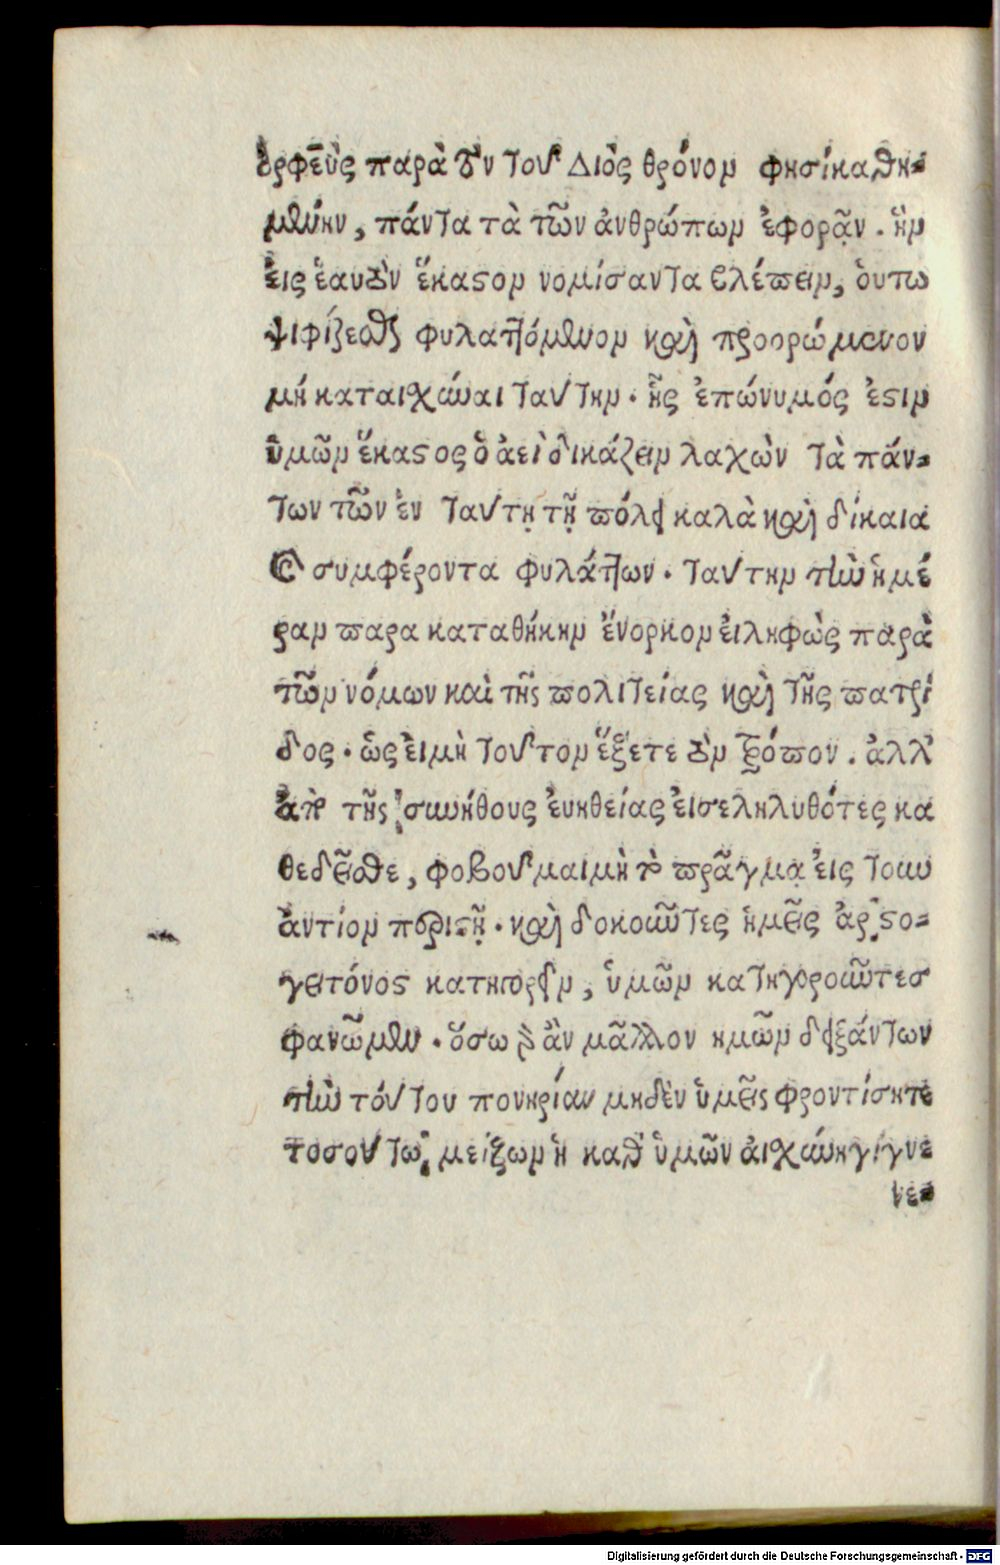 ὀρφεὺς παρὰ τὸν τοῦ Διὸς θρόνον φησί καθη-
μένην, πάντα τὰ τῶν ἀνθρώπων ἐφορᾷν. ἣν
εἰς ἑαυτὸν ἕκαστον νομίσαντα βλέπειν, ὁυτω
ψιφίζεσθαι φυλαττόμενον καὶ προορώμενον
μή καταισχύναι ταύτην. ἧς ἐπώνυμός ἐστιν
ὑμῶν ἕκαστος ὁ ἀεὶ δικάζειν λαχὼν τὰ πάν-
των τῶν ἐν ταύτῃ τῇ πόλει καλὰ καὶ δίκαια
καὶ συμφέροντα φυλάττων. ταύτην τὴν ἡμέ
ραν παρα καταθήκην ἔνορκον ἐιληφὼς παρὰ
τῶν νόμων καὶ τῆς πολιτείας καὶ τῆς πατρί
δος. ὡς ἐι μὴ τοῦτον ἕξετε τὸν τρόπον. ἀλλ᾽
ἀπὸ τῆς συνήθους ἐυηθείας ἐισεληλυθότες κα
θεδεῖσθε, φοβοῦμαι μὴ τὸ πρᾶγμα εἰς τουν
ἀντίον περιστῇ. καὶ δοκοῦντες ἡμεῖς ἀριστο-
γειτόνος κατηγορεῖν, ὑμῶν κατηγοροῦντες
φανῶμεν. ὅσω γὰρ ἂν μᾶλλον ημῶν δειξάντων
τὴν τούτου πονηρίαν μηδὲν ὑμεῖς φροντίσητε
τοσούτῳ μείζων ἡ καθ᾽ ὑμῶν ἀισχύνη γίγνε
νε-
Digitalisierung gefördert durch die Deutsche Forschungsgemeinschaft - DFG